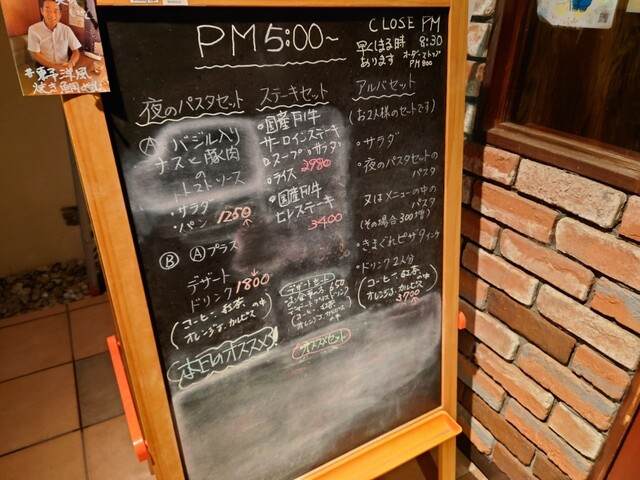 PM5:00~
CLOSE PM
8:30
早くしまる時
あります
オーダーストップ
PM 800
夜のパスタセット
Ⓐ バジル入り
ナスと豚肉
の
トマトソース
・サラダ
・パン 1250
Ⓑ Ⓐプラス
デザート
ドリンク 1800
(コーヒー、紅茶、の中
オレンジ、カルピス)
本日のオススメ
ステーキセット
・国産F1牛
サーロインステーキ
・スープ・サラダ
・ライス 2980
・国産F1牛
ヒレステーキ
3400
デザートセット
650
オススメセット
アルバセット
(お2人様のセットです)
・サラダ
・夜のパスタセットの
パスタ
又はメニューの中の
パスタ
(その場合300増)
・きまぐれピザ
・ドリンク2人分
(コーヒー、紅茶の中
オレンジ、カルピス)
3700